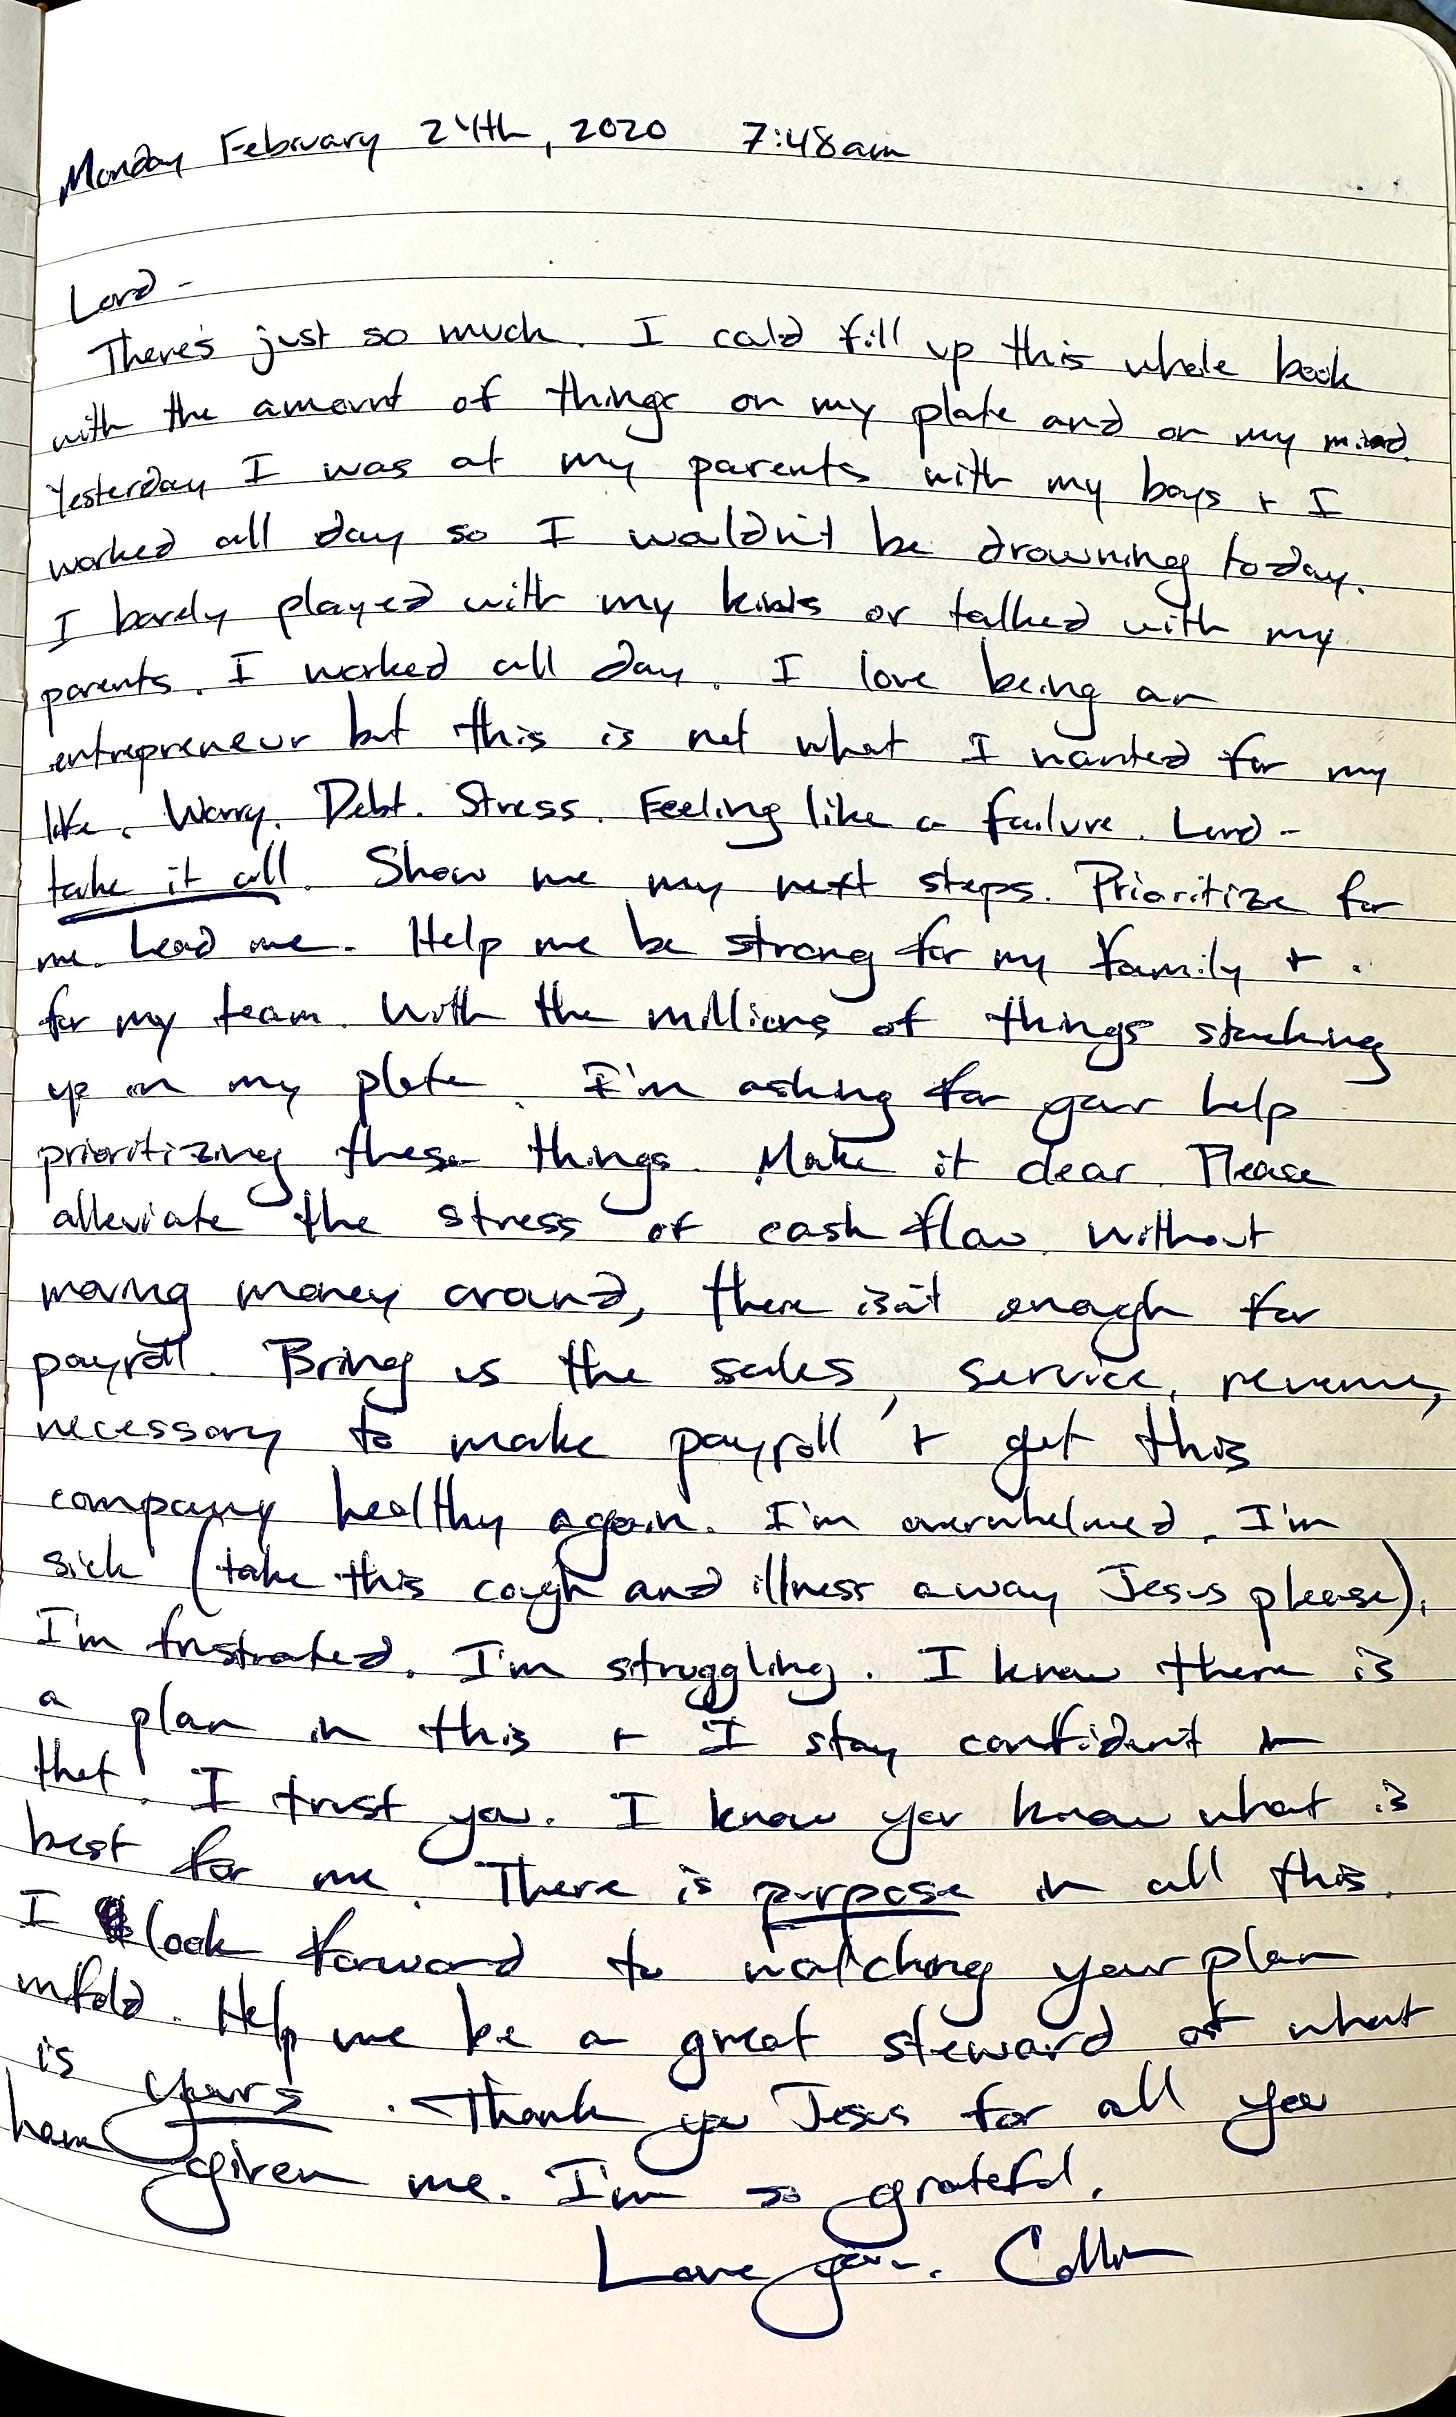 Monday February 24th, 2020 7:48am
Lord -
There's just so much. I could fill up this whole book
with the amount of things on my plate and on my mind.
Yesterday I was at my parents with my boys + I
worked all day so I wouldn't be drowning today.
I barely played with my kids or talked with my
parents. I worked all day. I love being an
entrepreneur but this is not what I wanted for my
life. Worry. Debt. Stress. Feeling like a failure. Lord -
take it all. Show me my next steps. Prioritize for
me. Lead me. Help me be strong for my family +
for my team. With the millions of things stacking
up on my plate. I'm asking for your help
prioritizing these things. Make it clear. Please
alleviate the stress of cash flow. Without
moving money around, there isn't enough for
payroll. Bring us the sales, service, revenue,
necessary to make payroll + get this
company healthy again. I'm overwhelmed. I'm
sick (take this cough and illness away Jesus please).
I'm frustrated. I'm struggling. I know there is
a plan in this + I stay confident in
that. I trust you. I know you know what is
best for me. There is purpose in all this.
I look forward to watching your plan
unfold. Help me be a great steward of what
is yours. Thank you Jesus for all you
have given me. I'm so grateful.
Love you. Collin